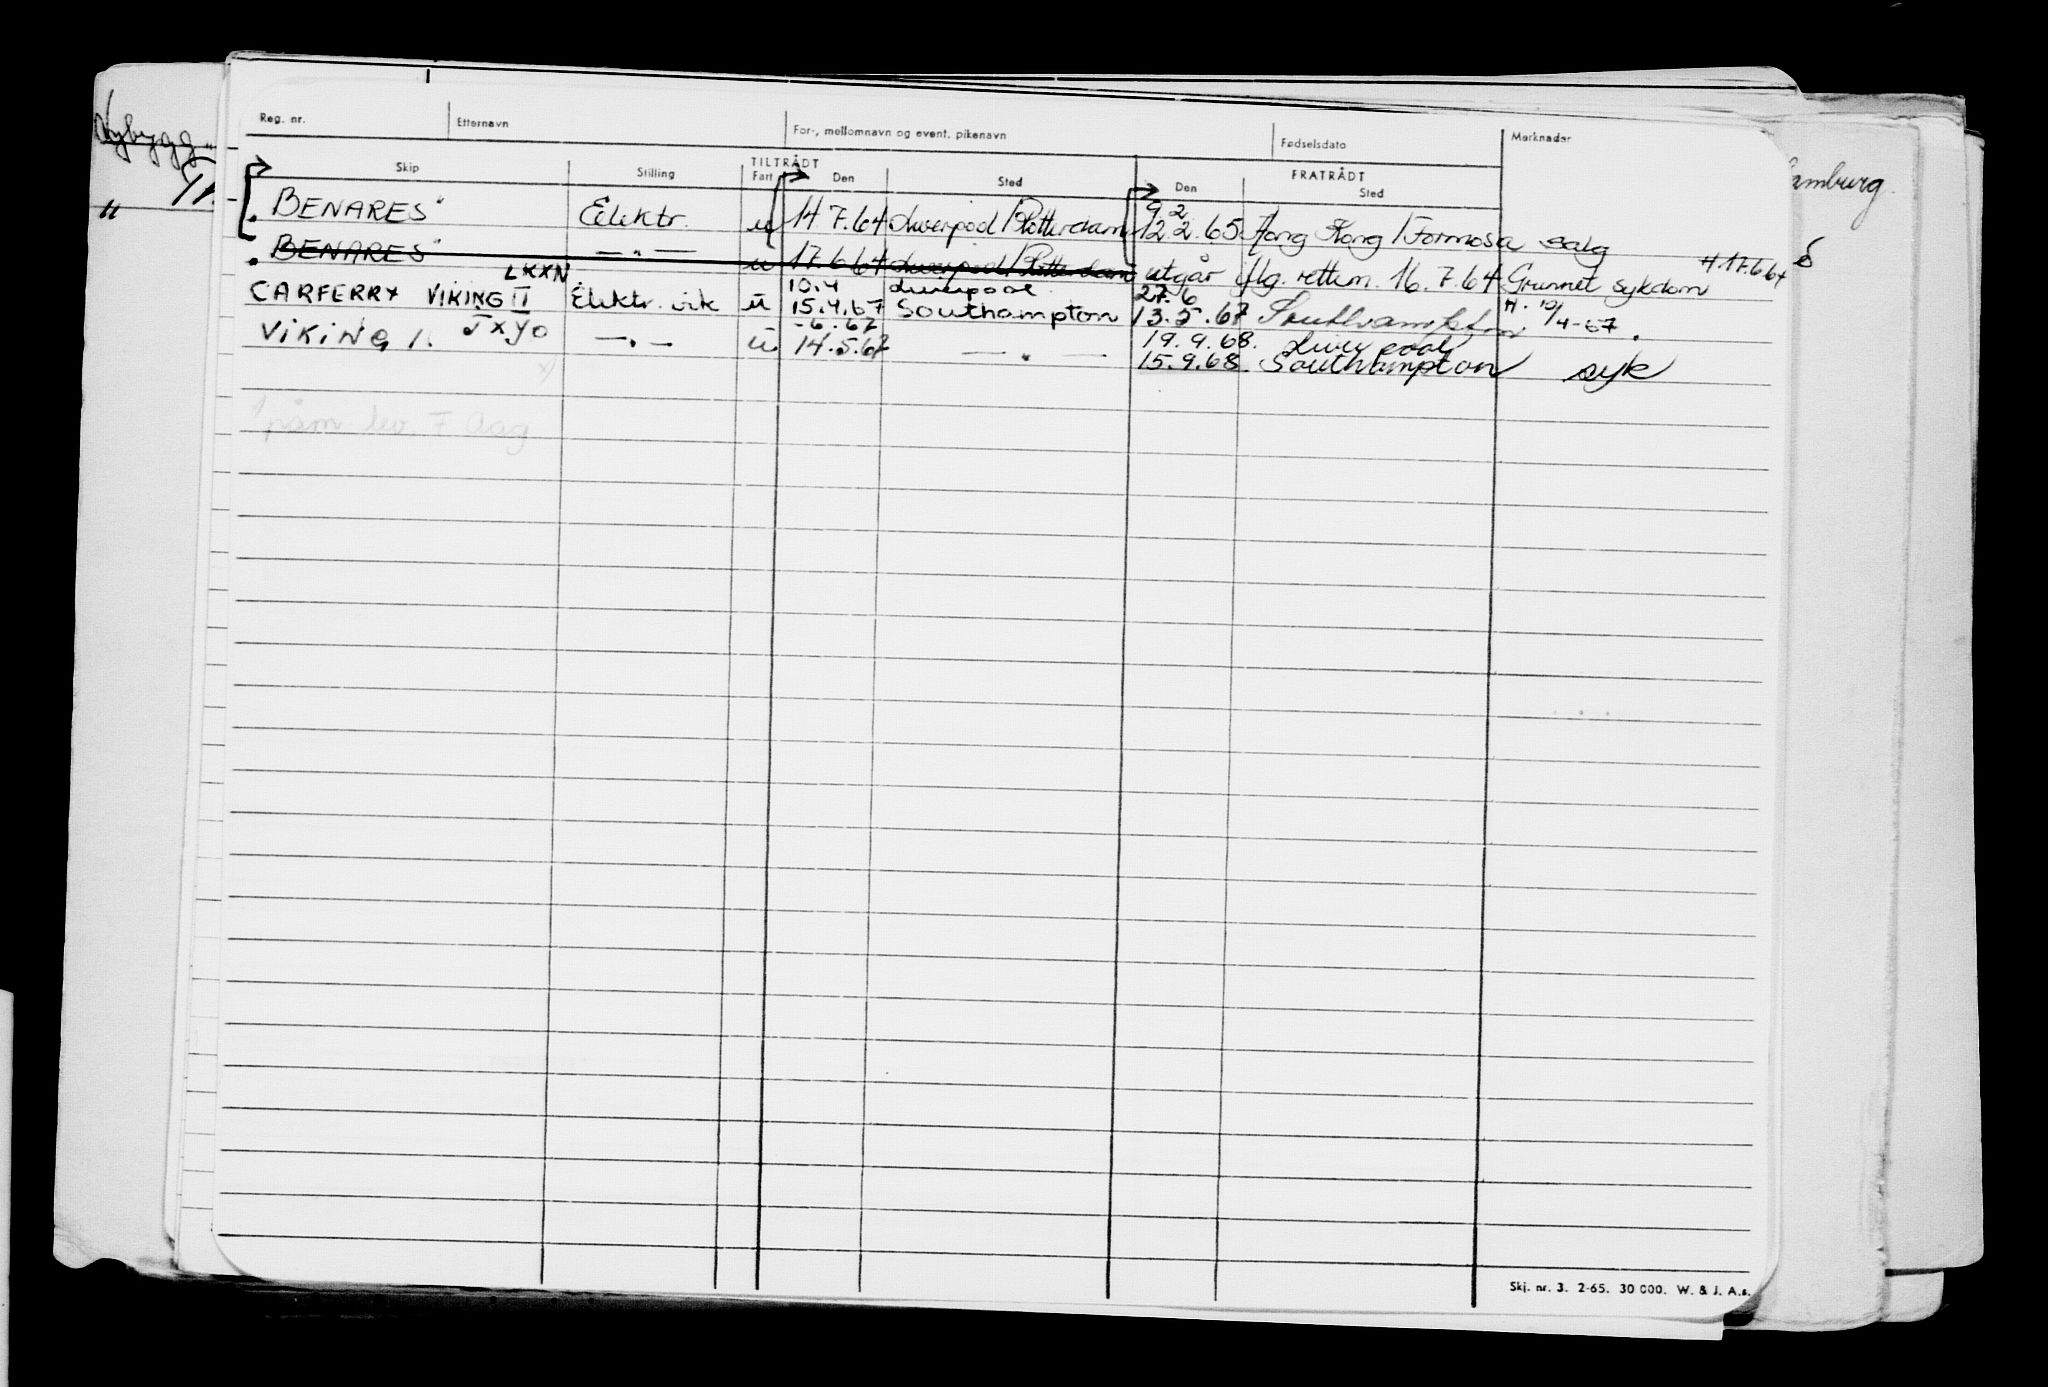 Reg. nr. Etternavn For-, mellomnavn og event. pikenavn Fødselsdato Merknader
TILTRÅDT FRATRÅDT
Skip Stilling Fart Den Sted Den Sted
Nybygg
Hamburg.
"BENARES" Elektr. u 14.7.64 Liverpool/Rotterdam 9 2 12.2.65 Hong Kong/Formosa salg
"BENARES" — " — u 17.6.64 Liverpool/Rotterdam utgår iflg. rettem. 16.7.64 Grunnet sykdom H 17.6.64
LXXN 10.4 Liverpool 27.6
CARFERRY VIKING II Elektr. vik u 15.4.67 Southampton 13.5.67 Southampton H. 10/4-67.
JXYO -6.67 19.9.68. Liverpool
VIKING I. — " — u 14.5.67 — " — 15.9.68. Southampton syk
påm. lev. F Aag
Skj. nr. 3. 2-65. 30 000. W. & J. A.s.